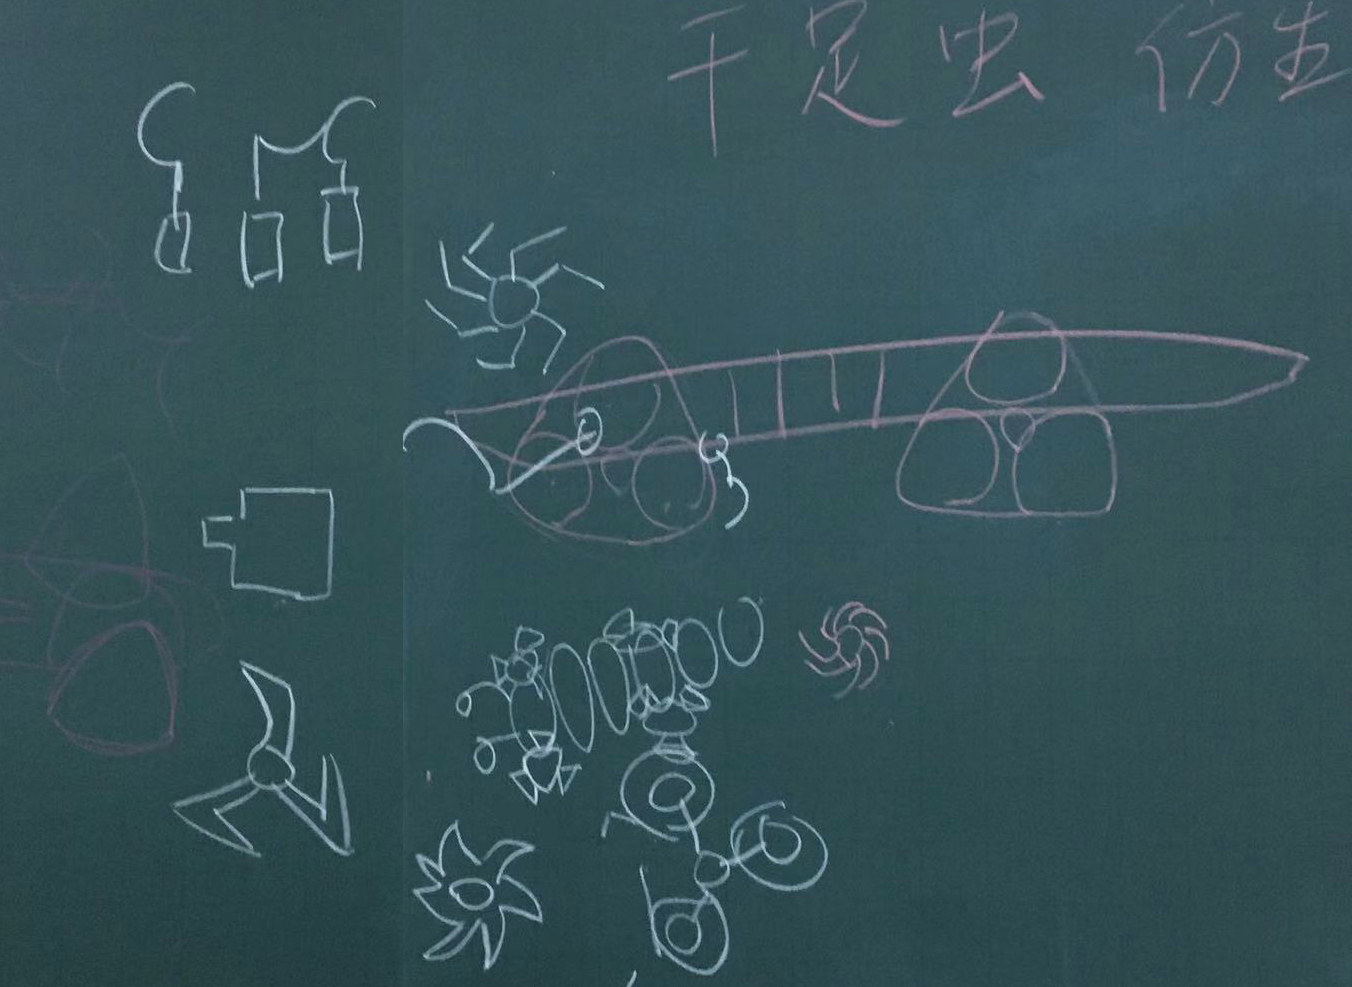 千足虫 仿生